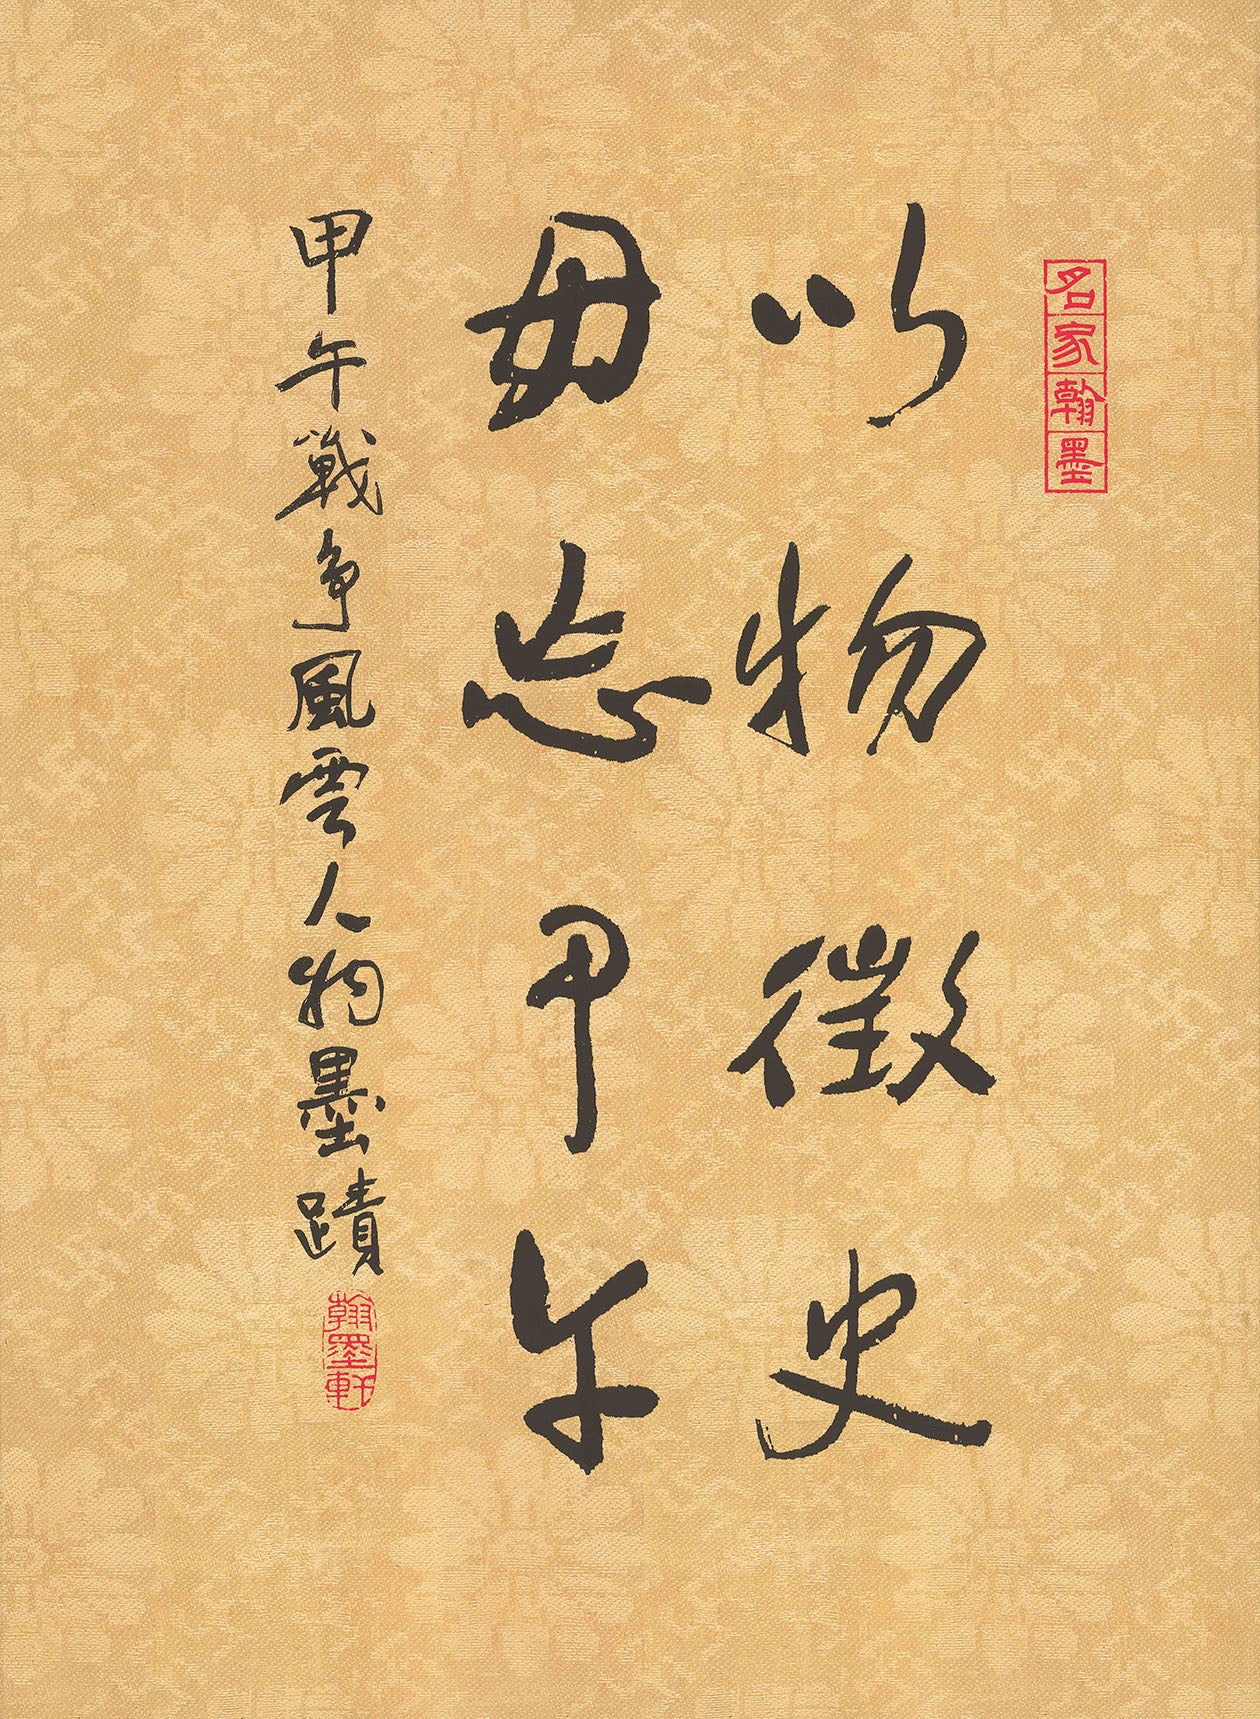 名家翰墨
以物徵史
毋忘甲午
甲午戰爭風雲人物墨蹟
翰墨軒